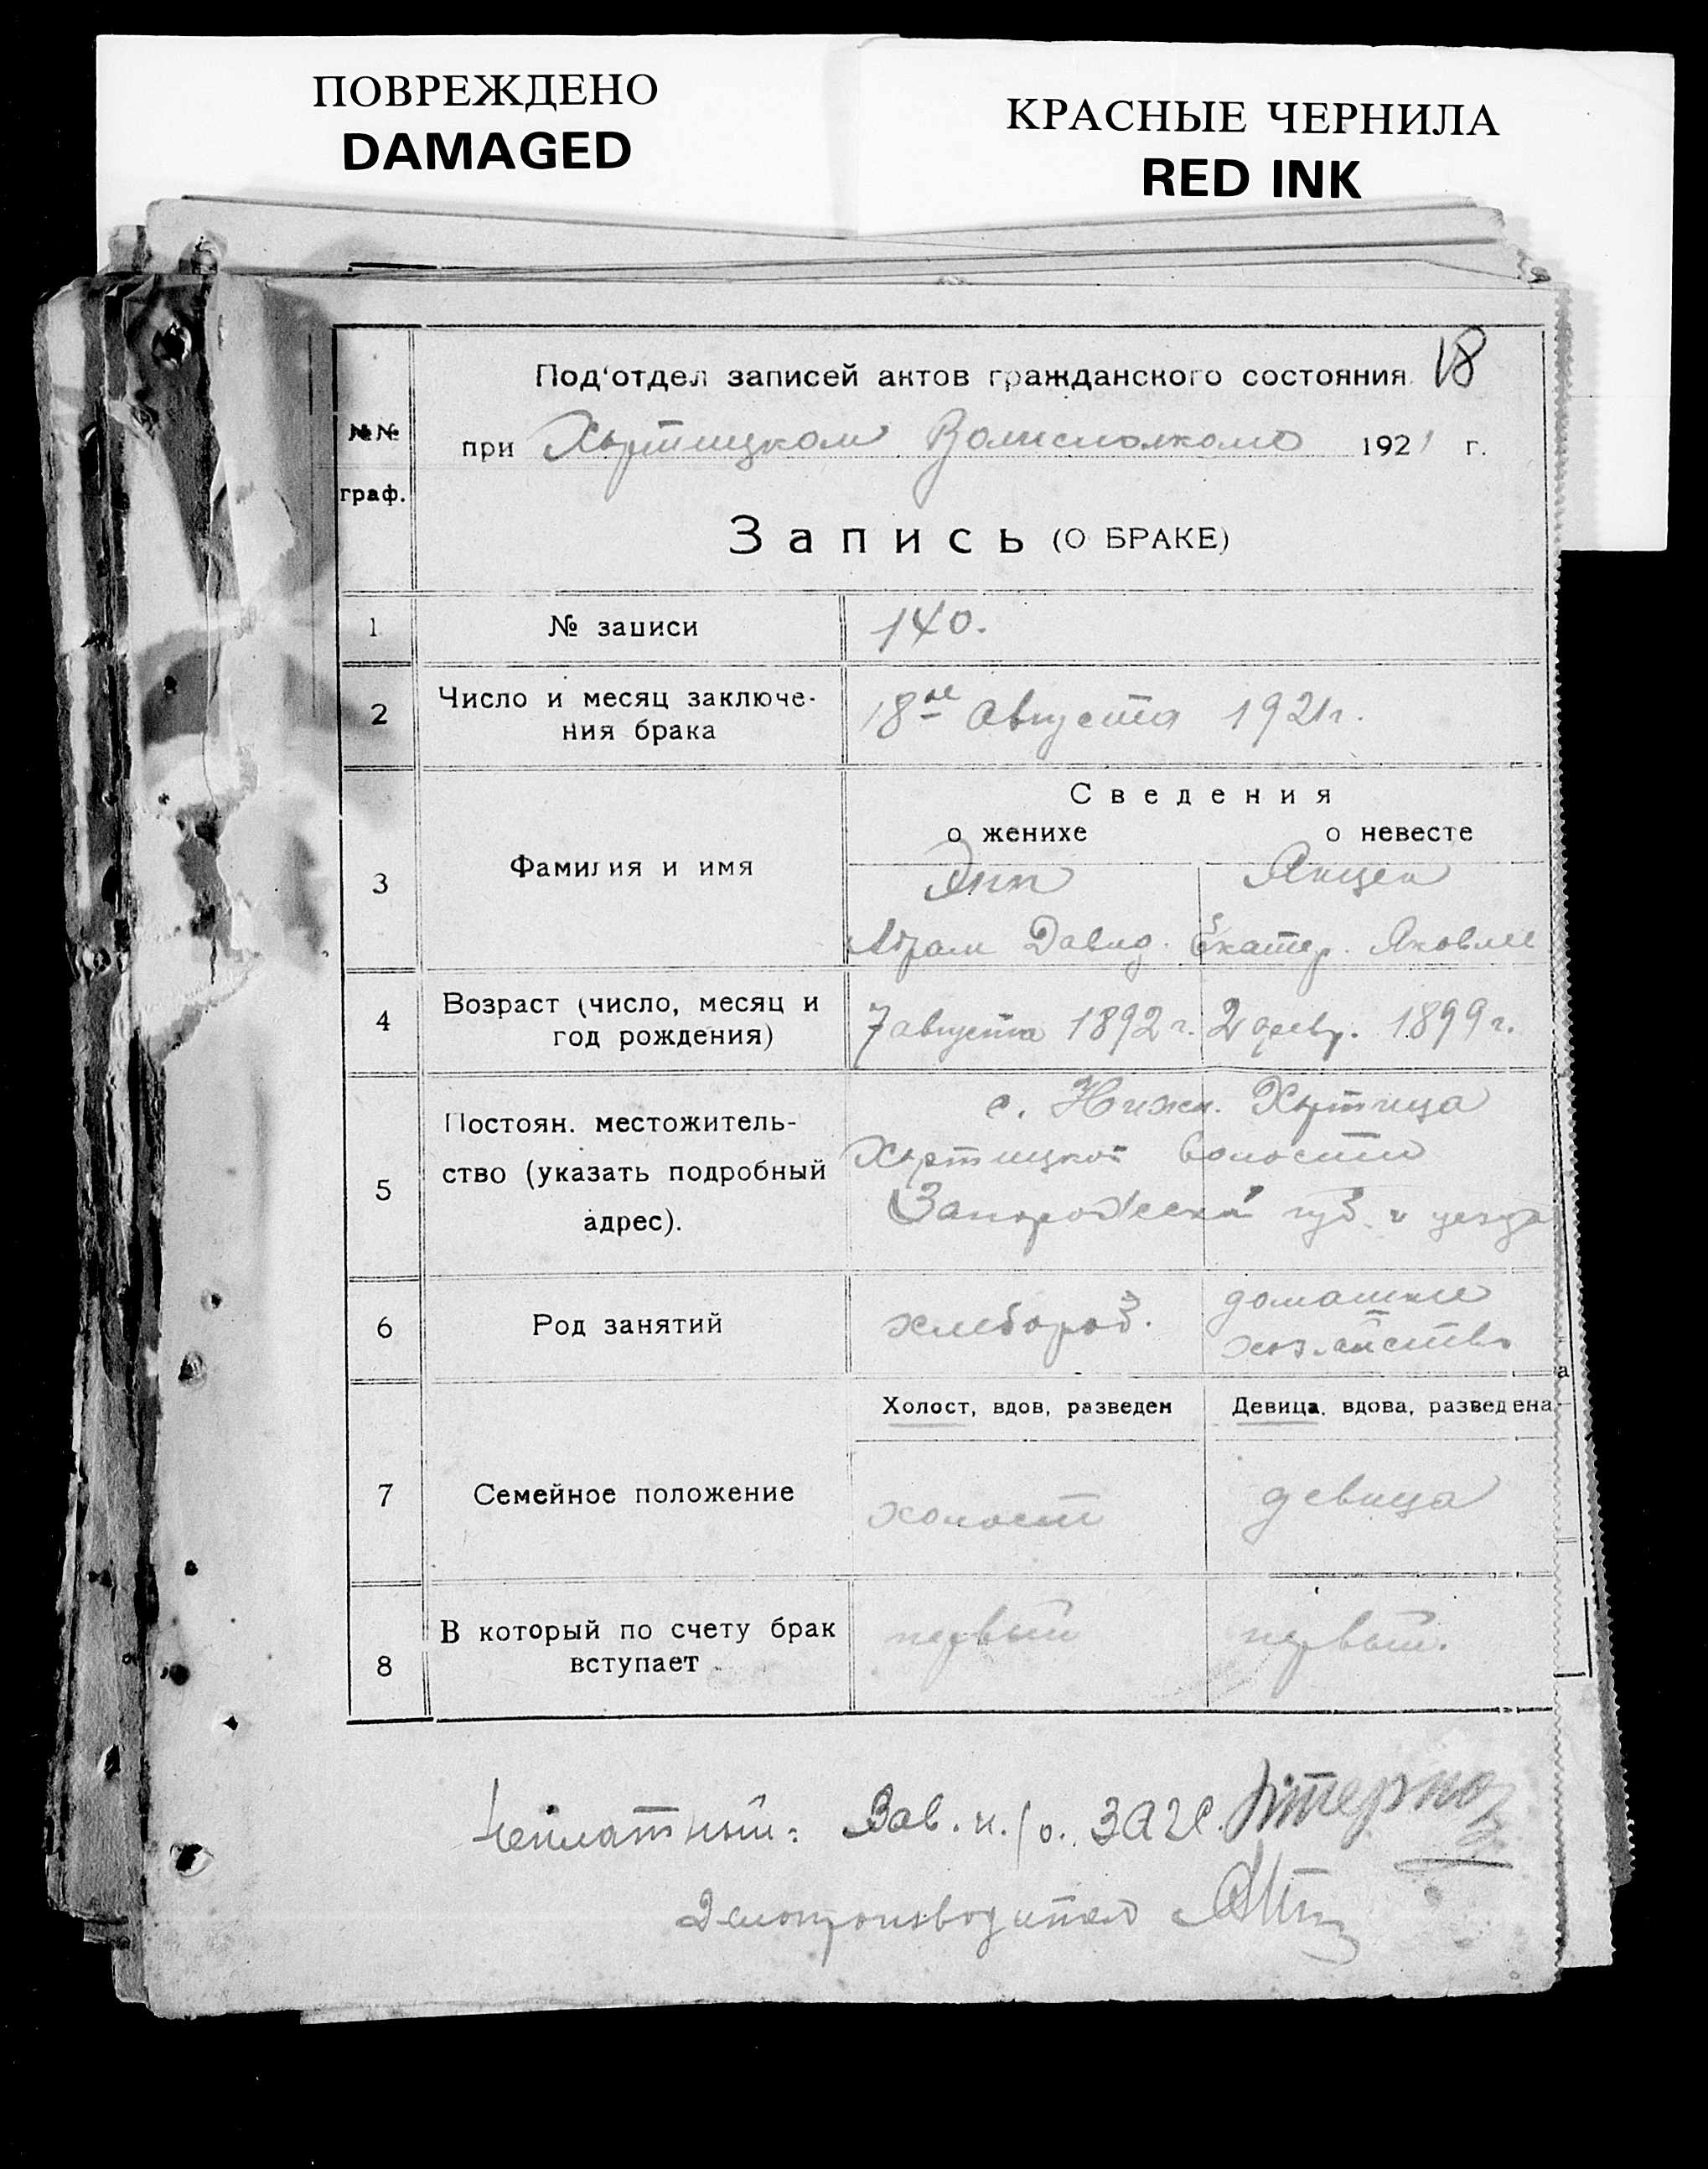 ПОВРЕЖДЕНО
DAMAGED
КРАСНЫЕ ЧЕРНИЛА
RED INK
18
№№
граф.
Под'отдел записей актов гражданского состояния
при Хортицком Волисполкоме 1921 г.
Запись (О БРАКЕ)
1 № записи 140.
2 Число и месяц заключе-
ния брака
18го августа 1921 г.
Сведения
о женихе о невесте
3 Фамилия и имя
Янцен
Абрам Давид. Екатер. Яковле
4 Возраст (число, месяц и
год рождения)
7 августа 1892 г. 2 февр. 1899 г.
5 Постоян. местожитель-
ство (указать подробный
адрес).
с. Нижн. Хортица
Хортицкой волости
Запорожской губ. и уезда
6 Род занятий
хлебороб.
домашнее
хозяйство
Холост, вдов, разведен Девица, вдова, разведена
7 Семейное положение
холост девица
8 В который по счету брак
вступает
первый первый.
Зав. п/о. ЗАГС
Делопроизводитель